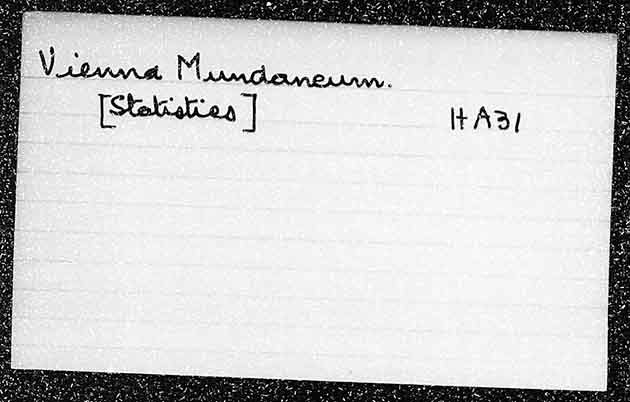 Vienna Mundaneum.
[Statistics] HA31